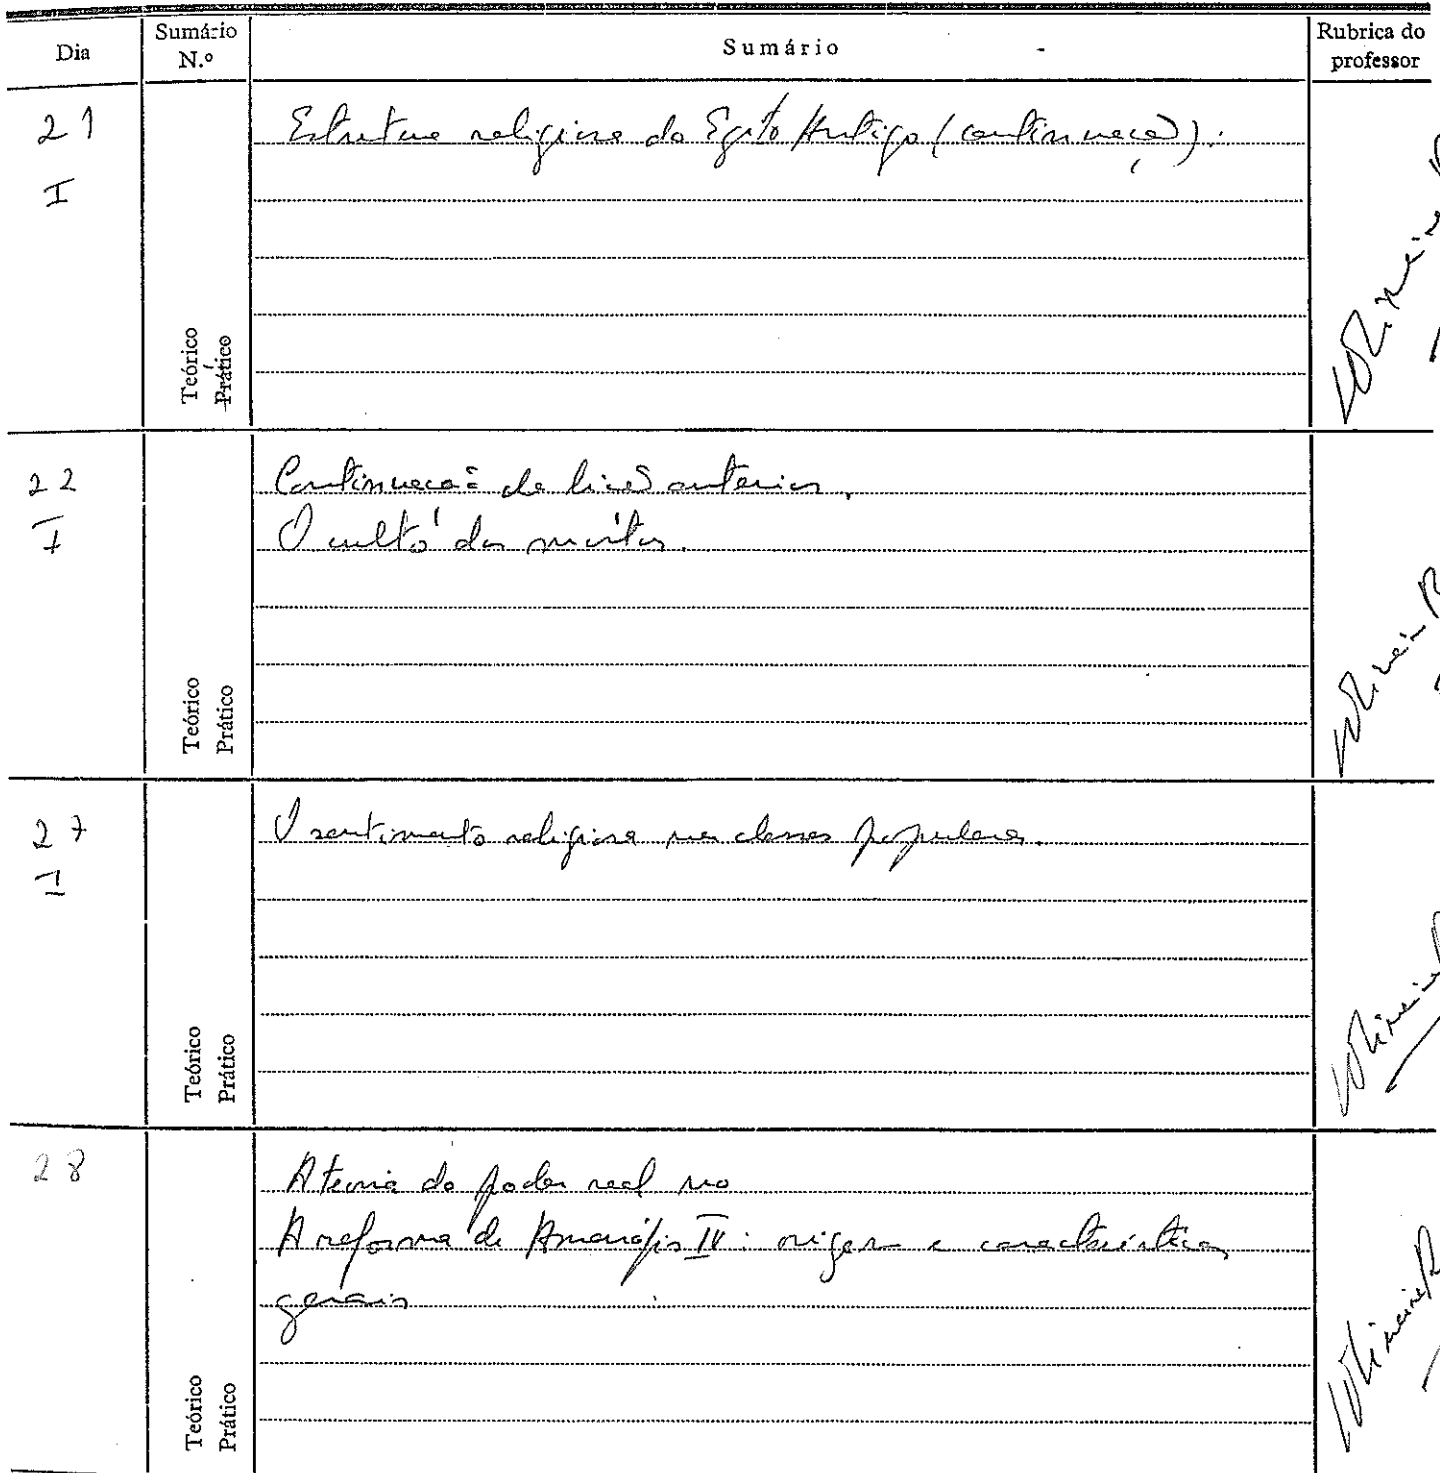 Dia
Sumário N.º
Sumário
Rubrica do professor
21
I
Estrutura religiosa do Egito Antigo (continuação).
Teórico
Prático
22
I
Continuação da lição anterior.
O culto dos mortos.
Teórico
Prático
27
I
O sentimento religioso nas classes populares.
Teórico
Prático
28
A teoria do poder real no
A reforma de Amenófis IV: origem e características
gerais
Teórico
Prático